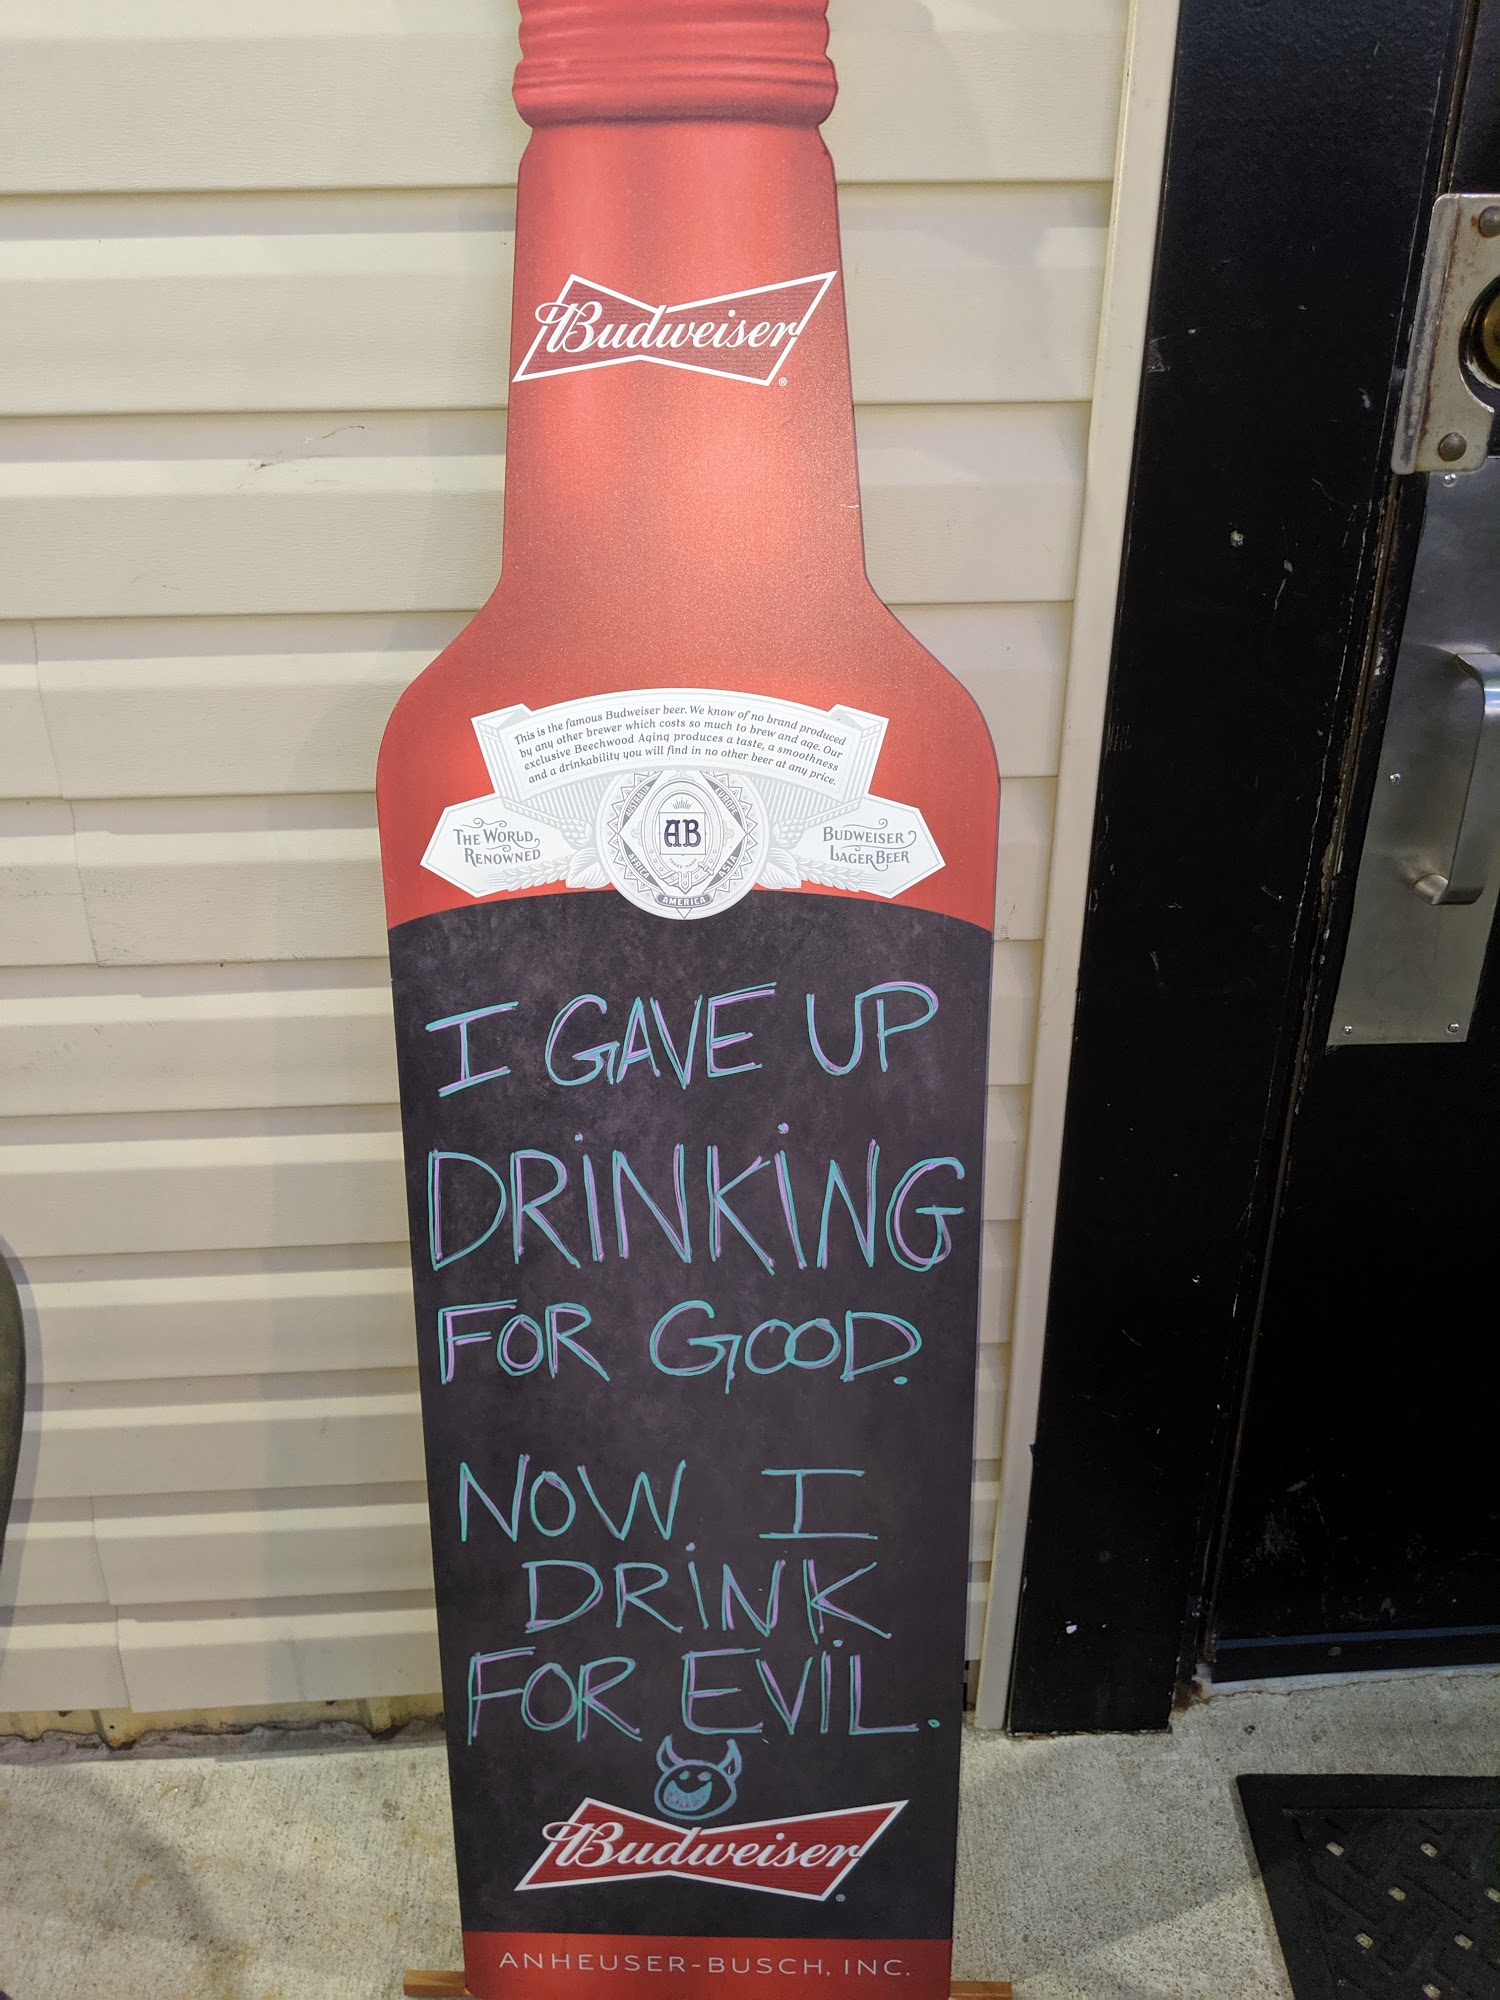 Budweiser
®
This is the famous Budweiser beer. We know of no brand produced
by any other brewer which costs so much to brew and age. Our
exclusive Beechwood Aging produces a taste, a smoothness
and a drinkability you will find in no other beer at any price.
THE WORLD
RENOWNED
AUSTRALIA
EUROPE
AB
TRADE MARK
AFRICA
ASIA
AMERICA
BUDWEISER
LAGER BEER
I GAVE UP
DRiNKiNG
FOR GOOD.
NOW I
DRiNK
FOR EViL.
Budweiser
®
ANHEUSER-BUSCH, INC.